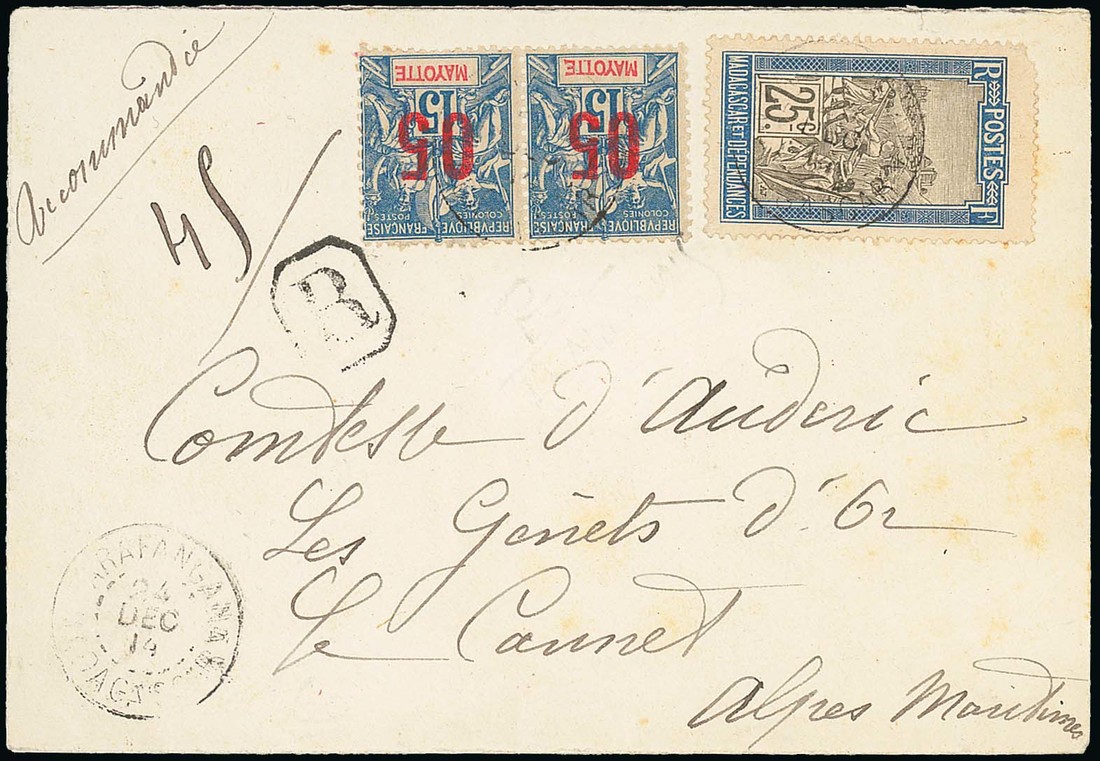 Recommandée
45
R
MAYOTTE
15
05
COLONIES POSTES
REPUBLIQUE FRANÇAISE
MAYOTTE
15
05
COLONIES POSTES
REPUBLIQUE FRANÇAISE
POSTES
RF
25c.
MADAGASCAR ET DÉPENDANCES
Comtesse d'Auderic
Les Genêts d'Or
Le Cannet
Alpes Maritimes
FARAFANGANA
24
DEC
14